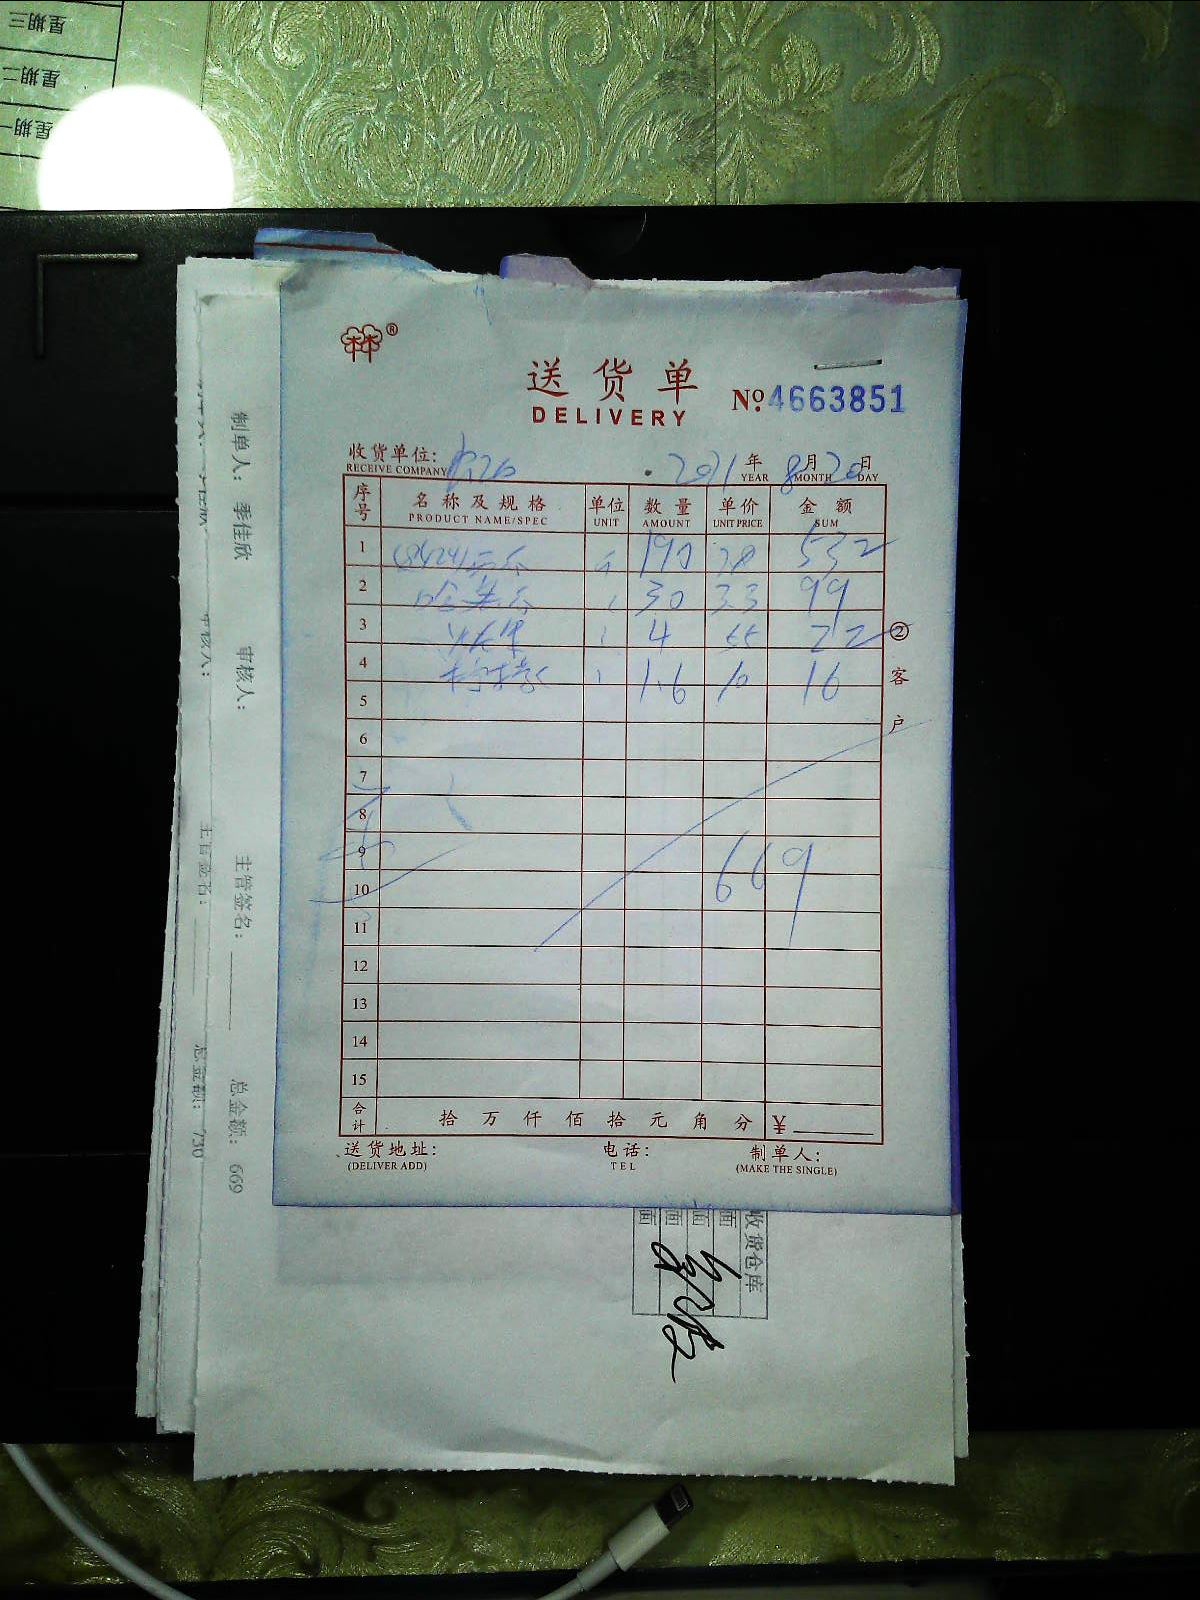 星期三
星期二
星期一
林®
送货单
DELIVERY
No.4663851
收货单位:
RECEIVE COMPANY
2021年8月20日
YEAR MONTH DAY
序号 名称及规格 单位 数量 单价 金额
PRODUCT NAME/SPEC UNIT AMOUNT UNIT PRICE SUM
1 8424西瓜 斤 190 2.8 532
2 哈美瓜 30 3.3 99
3 4 5.5 22
4 柠檬 1.6 10 16
5
6
7
8
9 669
10
11
12
13
14
15
合计 拾万仟佰拾元角分 ¥
②客户
送货地址: 电话: 制单人:
(DELIVER ADD) TEL (MAKE THE SINGLE)
制单人: 季佳欣 审核人: 主管签名: 总金额: 669
审核人: 主管签名: 总金额: 730
收货仓库
面
面
面
面